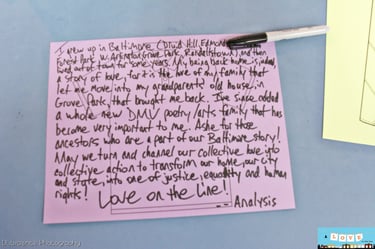 I grew up in Baltimore (Druid Hill, Edmondson
Forest Park, W. Arlington, Grove Park, Randallstown) and then
lived out of town for some years. My being back home is, indeed,
a story of love, for it is the love of my family that
let me move into my grandparents' old house, in
Grove Park, that brought me back. I've since added
a whole new DMV poetry/arts family that has
become very important to me. Ashe for those
ancestors who are a part of our Baltimore story!
May we turn and channel our collective love into
collective action to transform our home, our city
and state, into one of justice, equality and human
rights! Love on the line!
Analysis
Photography
LOVE